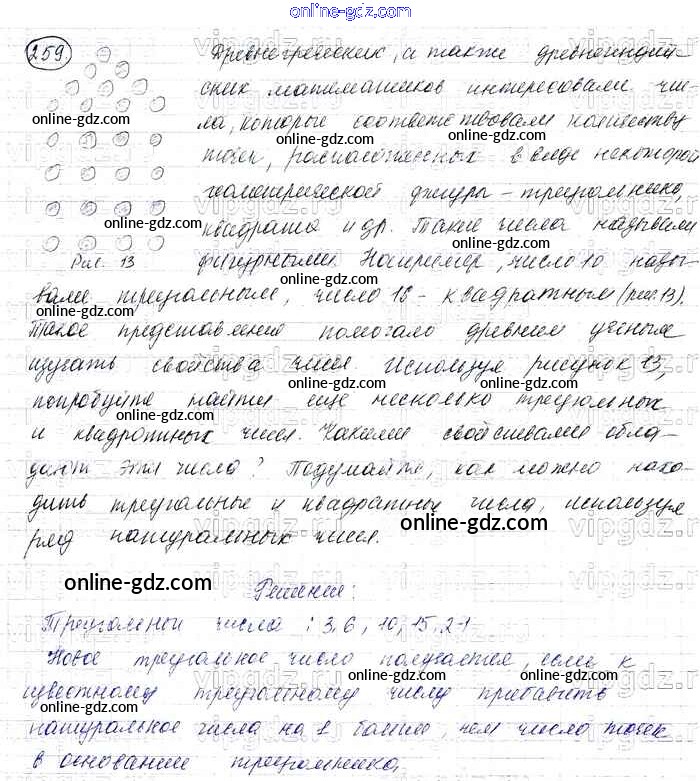 online-gdz.com
259. Древнегреческих, а также древнеиндий-
ских математиков интересовали чис-
ла, которые соответствовали количеству
online-gdz.com
точек, расположенных в виде некоторой
online-gdz.com
геометрической фигуры - треугольника,
online-gdz.com
квадрата и др. Такие числа называли
online-gdz.com
Рис. 13 фигурными. Например, число 10 назы-
вали треугольным, число 16 - квадратным (рис. 13).
online-gdz.com
Такое представление помогало древним учёным
изучать свойства чисел. Используя рисунок 13,
online-gdz.com
попробуйте найти ещё несколько треугольных
online-gdz.com
и квадратных чисел. Какими свойствами обла-
дают эти числа? Подумайте, как можно нахо-
online-gdz.com
дить треугольные и квадратные числа, используя
ряд натуральных чисел.
online-gdz.com
online-gdz.com
Решение:
Треугольный числа: 3, 6, 10, 15, 21
Новое треугольное число получается, если к
online-gdz.com
известному треугольному числу прибавить
online-gdz.com
натуральное числа на 1 больше, чем число точек
online-gdz.com
в основании треугольника.
vipgdz.ru